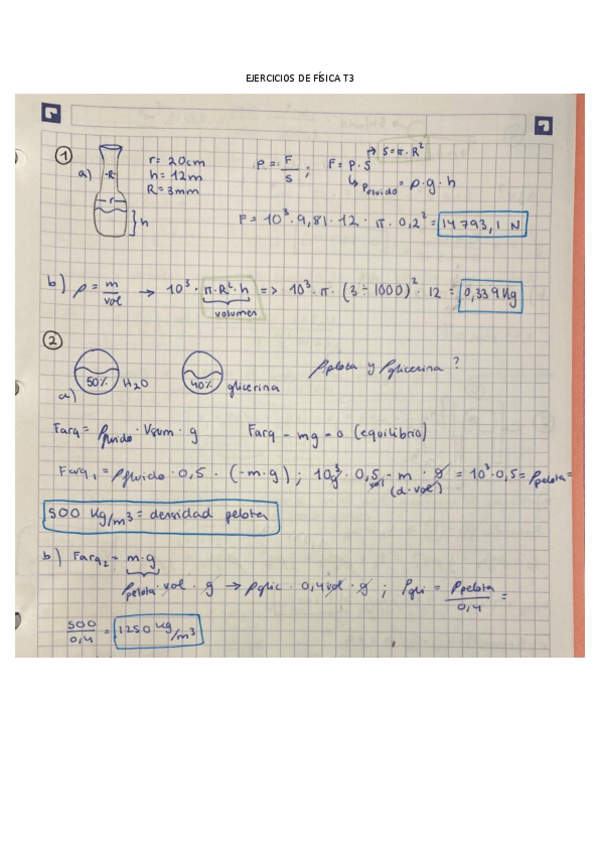 EJERCICIOS DE FÍSICA T3
① a) R r h
r = 20cm
h = 12m
R = 3mm
P = F/S ; F = P · S
S = π · R²
Pfluido = ρ · g · h
F = 10³ · 9,81 · 12 · π · 0,2² = 14 793,1 N
b) ρ = m/vol → 10³ · π · R² · h => 10³ · π · (3 ÷ 1000)² · 12 = 0,339 Kg
volumen
②
50% H2O 40% glicerina ρpelota y ρglicerina ?
a)
Farq = ρfluido · Vsum · g Farq - mg = 0 (equilibrio)
Farq1 = ρfluido · 0,5 · (-m·g) ; 10³g · 0,5 vol - m · g = 10³ · 0,5 = ρpelota =
(d · vol)
500 Kg/m³ = densidad pelota
b) Farq2 = m · g
ρpelota · vol · g → ρglic · 0,4 vol · g ; ρgli = ρpelota/0,4 =
500/0,4 = 1250 kg/m³